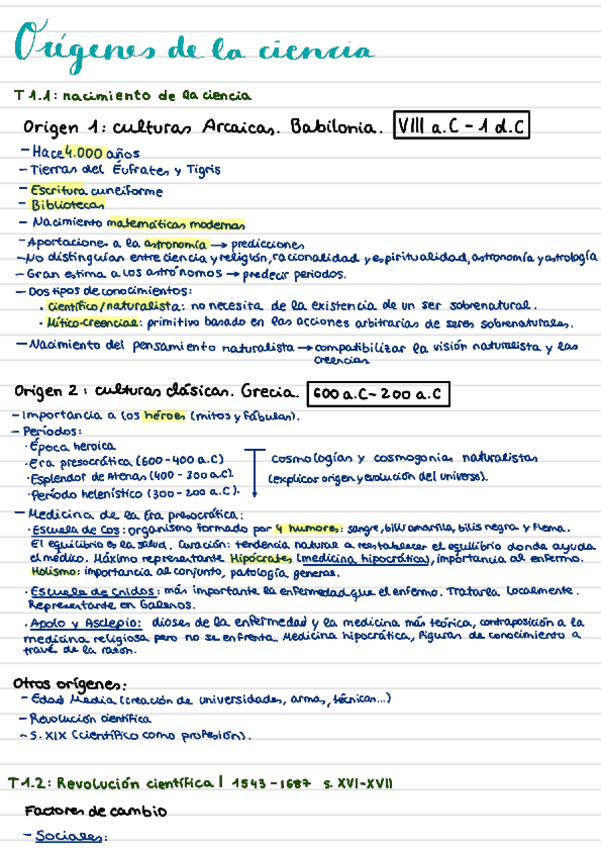 Orígenes de la ciencia
T 1.1: nacimiento de la ciencia
Origen 1: culturas Arcaicas. Babilonia. VIII a.C - 1 d.C
- Hace 4.000 años
- Tierras del Éufrates y Tigris
- Escritura cuneiforme
- Bibliotecas
- Nacimiento matemáticas modernas
- Aportaciones a la astronomía → predicciones
- No distinguían entre ciencia y religión, racionalidad y espiritualidad, astronomía y astrología
- Gran estima a los astrónomos → predecir periodos.
- Dos tipos de conocimientos:
· Científico/naturalista: no necesita de la existencia de un ser sobrenatural.
· Mítico-creencial: primitivo basado en las acciones arbitrarias de seres sobrenaturales.
- Nacimiento del pensamiento naturalista → compatibilizar la visión naturalista y las
creencias
Origen 2: culturas clásicas. Grecia. 600 a.C - 200 a.C
- Importancia a los héroes (mitos y fábulas).
- Períodos:
· Época heroica
· Era presocrática (600 - 400 a.C)
· Esplendor de Atenas (400 - 300 a.C).
· Período helenístico (300 - 200 a.C).
cosmologías y cosmogonías naturalistas
(explicar origen y evolución del universo).
- Medicina de la Era presocrática:
· Escuela de Cos: organismo formado por 4 humores: sangre, bilis amarilla, bilis negra y flema.
El equilibrio es la salud. Curación: tendencia natural a reestablecer el equilibrio donde ayuda
el médico. Máximo representante Hipócrates (medicina hipocrática), importancia al enfermo.
Holismo: importancia al conjunto, patología general.
· Escuela de Cnidos: más importante la enfermedad que el enfermo. Tratarla localmente.
Representante en Galenos.
· Apolo y Asclepio: dioses de la enfermedad y la medicina más teórica, contraposición a la
medicina religiosa pero no se enfrenta. Medicina hipocrática, figuras de conocimiento a
través de la razón.
Otros orígenes:
- Edad Media (creación de universidades, armas, técnicas...)
- Revolución científica
- S. XIX (científico como profesión).
T 1.2: Revolución científica | 1543 - 1687 s. XVI-XVII
Factores de cambio
- Sociales: